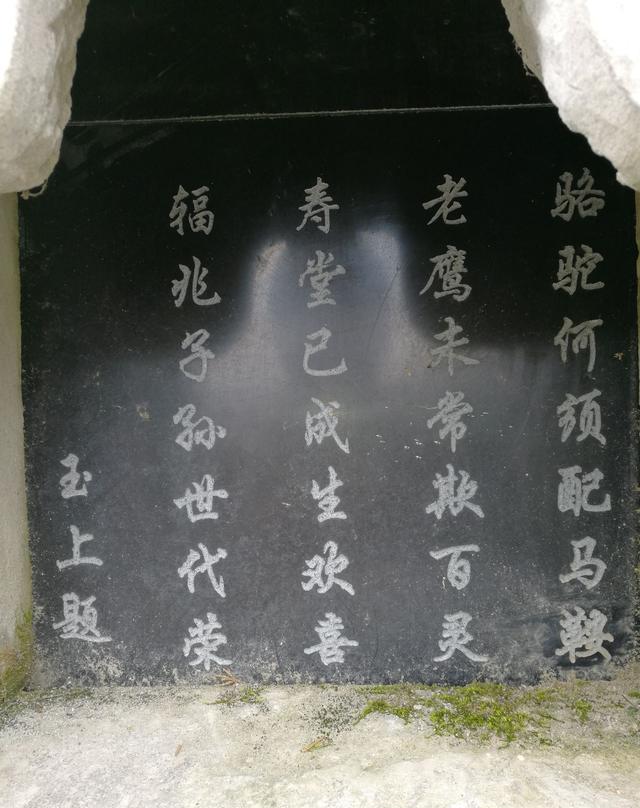 骆驼何须配马鞍
老鹰未常欺百灵
寿堂已成生欢喜
辐兆子孙世代荣
玉上题